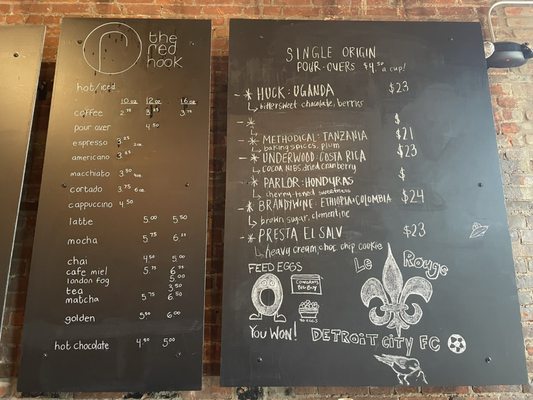 the
red
hook
hot/iced
10 oz 12 oz 16 oz
coffee 2.75 3.75
pour over 4.50
espresso 3.25 2oz
americano 3.25
macchiato 3.50
cortado 3.75 6oz
cappuccino 4.50
latte 5.00 5.50
mocha 5.75
chai 4.50 5.00
cafe miel 5.75 6.75
london fog 5.00
tea 3.50
matcha 5.75 6.50
golden 5.00 6.00
hot chocolate 4.50 5.00
SINGLE ORIGIN
POUR-OVERS $4.50 a cup!
* HUCK: UGANDA $23
bittersweet chocolate, berries
* $
* METHODICAL: TANZANIA $21
baking spices, plum
* UNDERWOOD: COSTA RICA $23
COCOA NIBS, dried cranberry
* PARLOR: HONDURAS $
cherry-toned sweetness
* BRANDYWINE: ETHIOPIA+COLOMBIA $24
brown sugar, clementine
* PRESTA EL SALV $23
heavy cream, choc chip cookie
FEED EGGS
YOU WON!
Le Rouge
DETROIT CITY FC